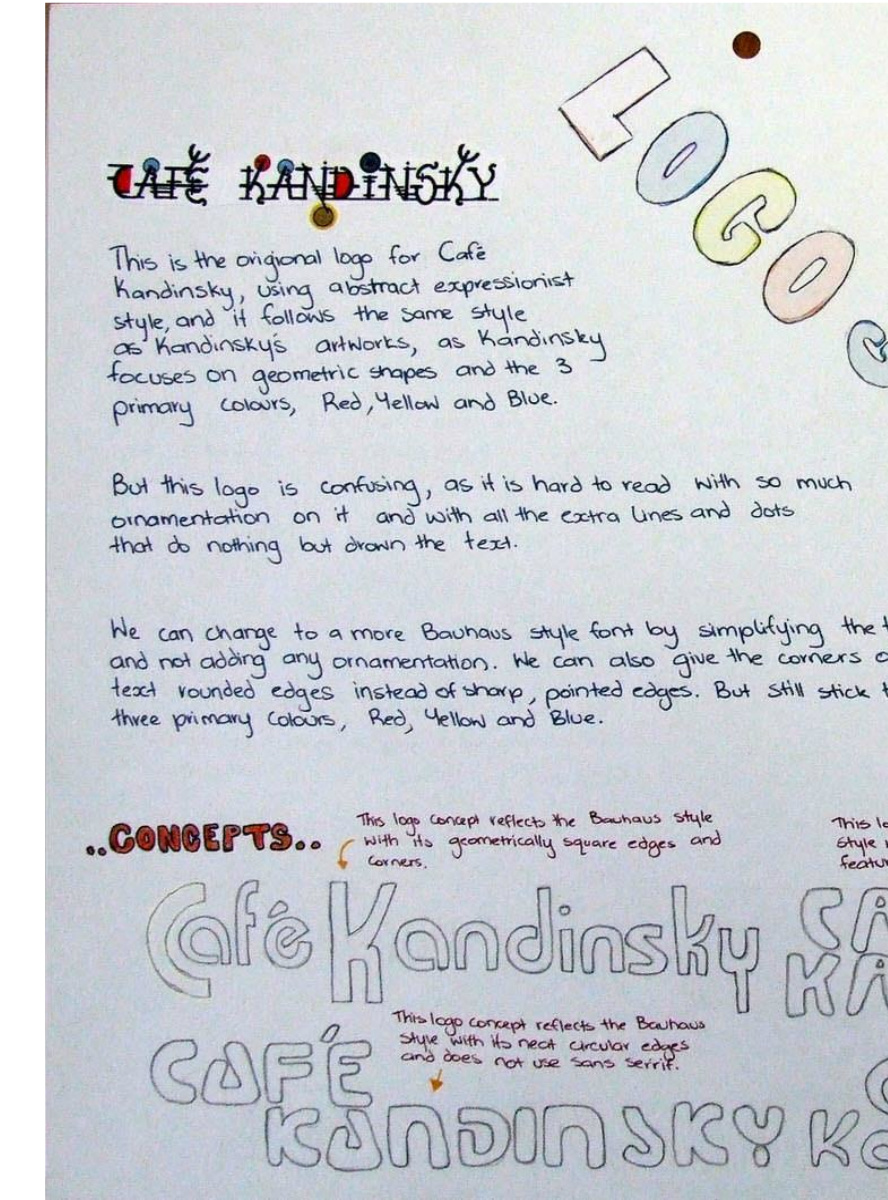 LOGO
CAFÉ KANDINSKY
This is the origional logo for Café
Kandinsky, using abstract expressionist
style, and it follows the same style
as Kandinsky's artworks, as Kandinsky
focuses on geometric shapes and the 3
primary colours, Red, Yellow and Blue.
But this logo is confusing, as it is hard to read with so much
ornamentation on it and with all the extra lines and dots
that do nothing but drown the text.
We can change to a more Bauhaus style font by simplifying the
and not adding any ornamentation. We can also give the corners
text rounded edges instead of sharp, pointed edges. But still stick
three primary colours, Red, Yellow and Blue.
..CONCEPTS..
This logo concept reflects the Bauhaus style
with its geometrically square edges and
corners.
This
style
Café Kandinsky
CA
KA
This logo concept reflects the Bauhaus
style with its neat circular edges
and does not use sans serrif.
CAFÉ
KANDINSKY